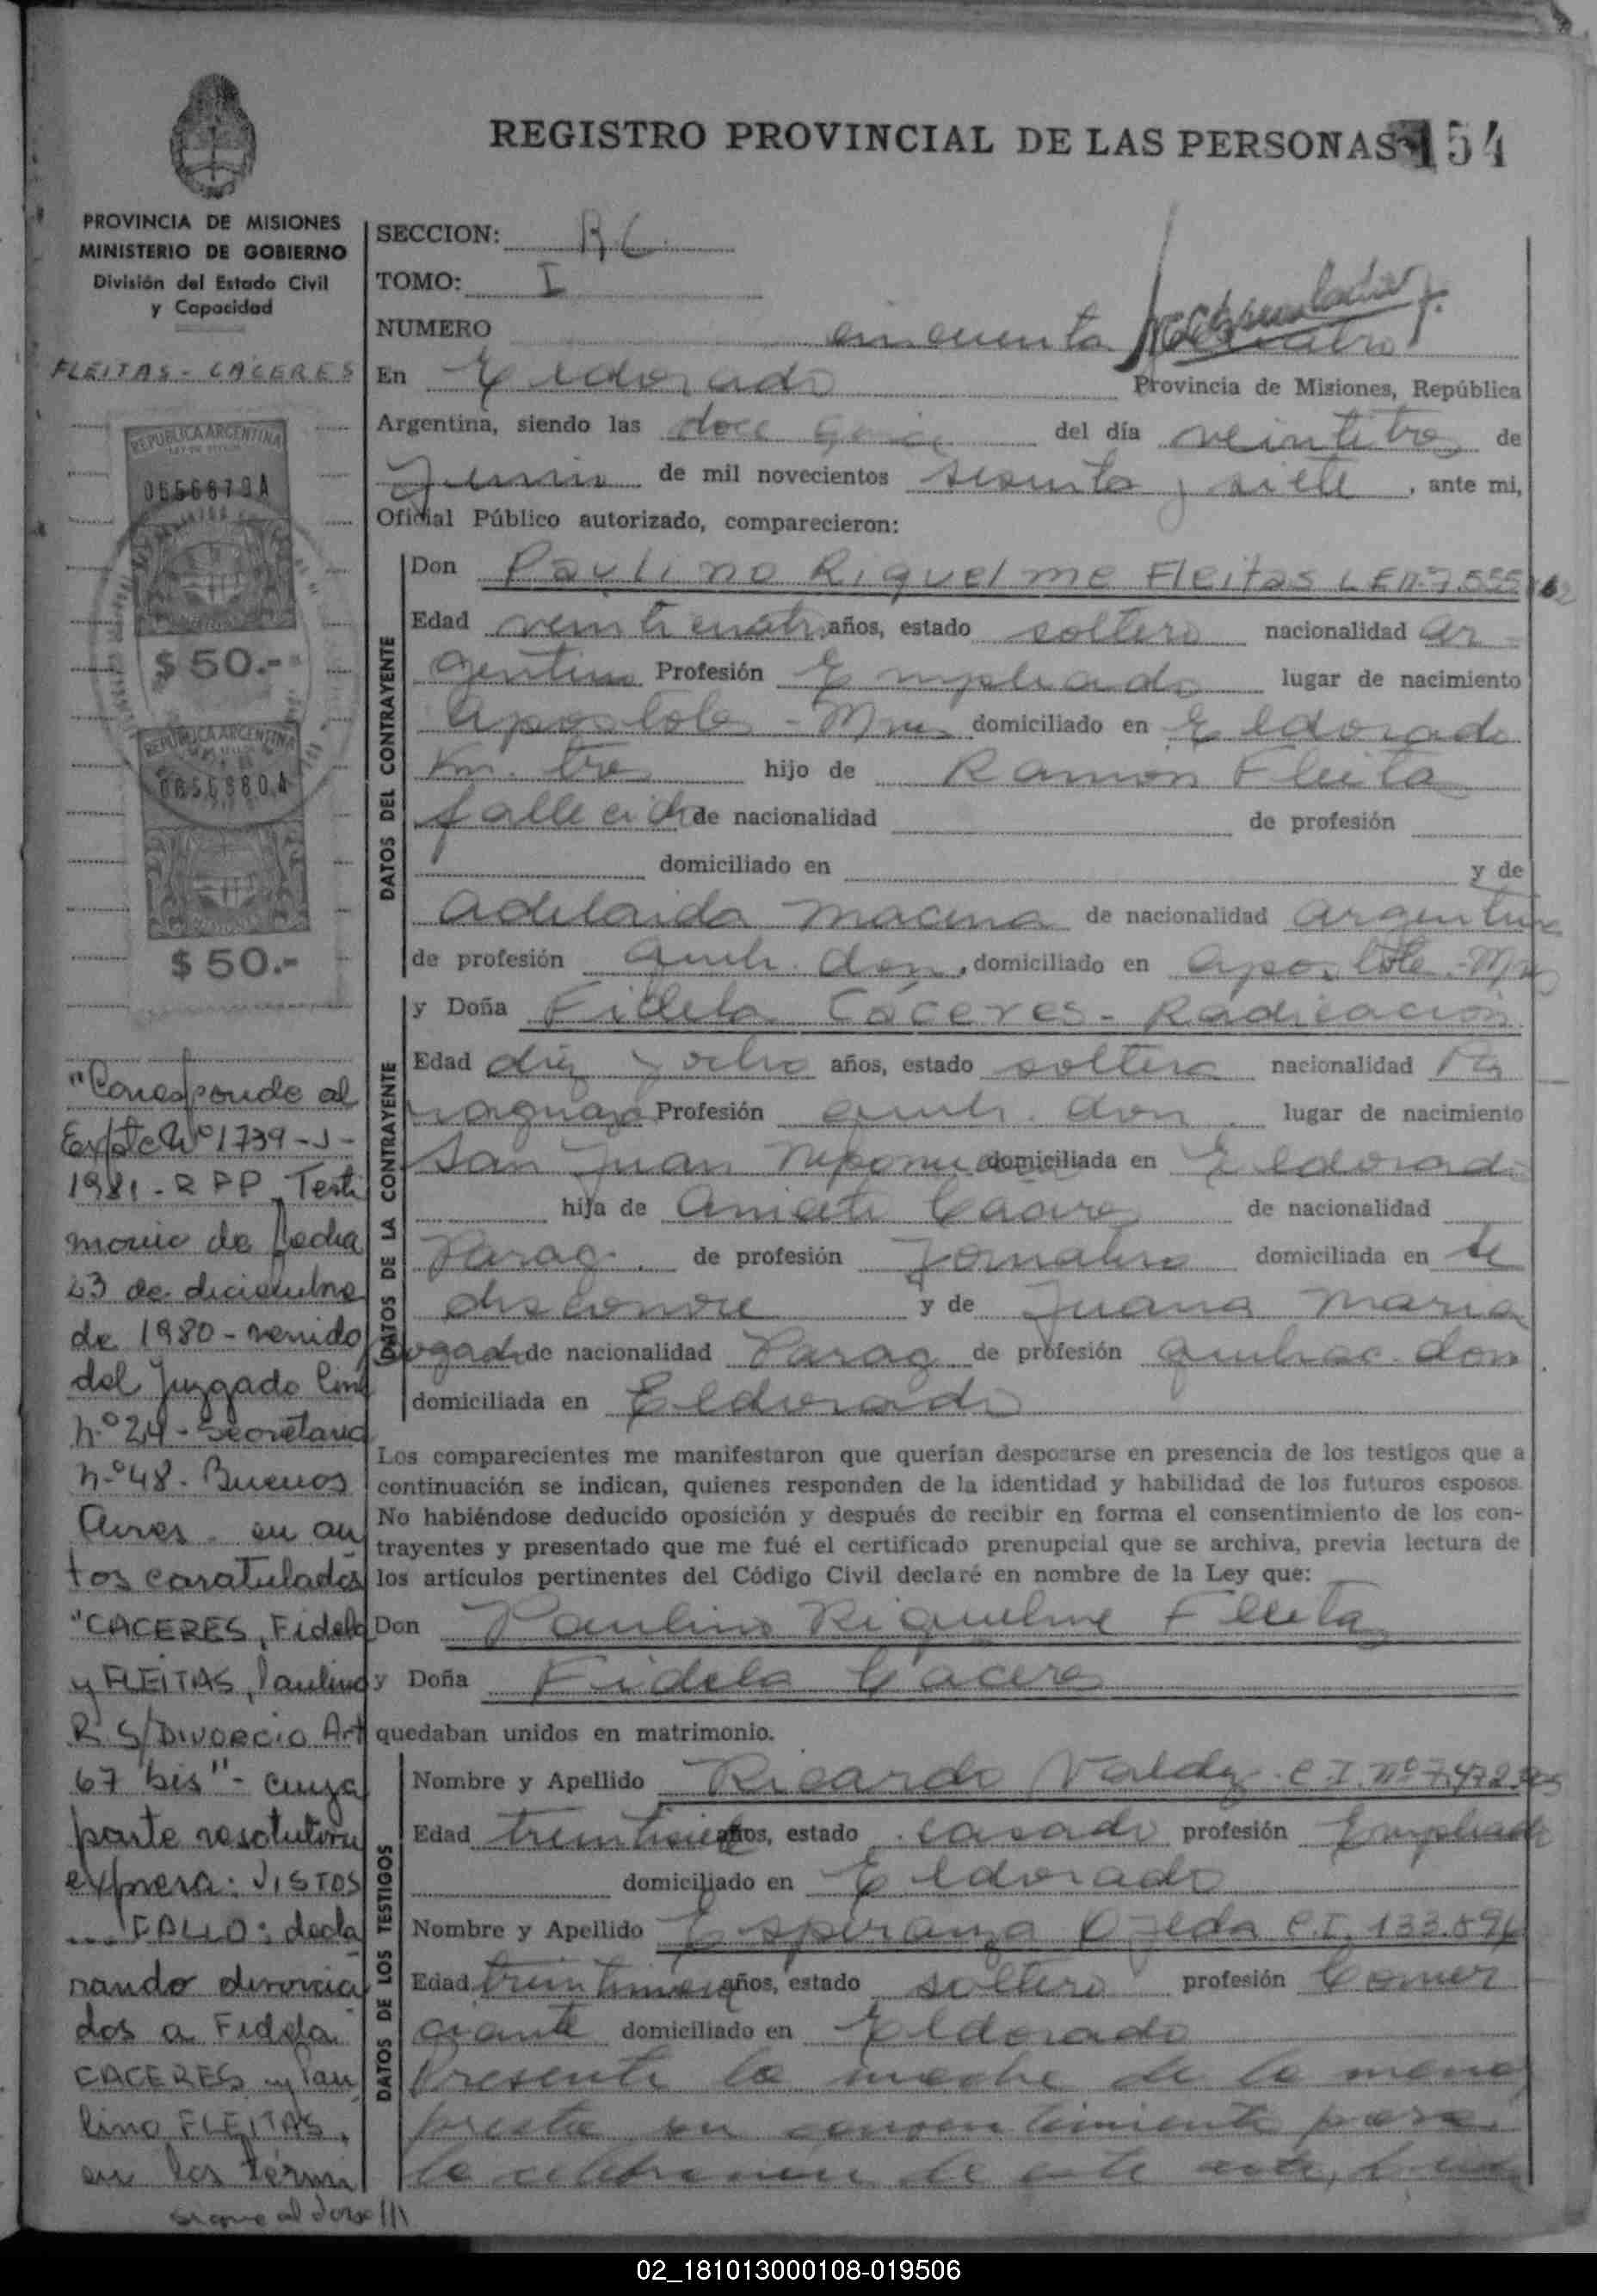 REGISTRO PROVINCIAL DE LAS PERSONAS 154
PROVINCIA DE MISIONES
MINISTERIO DE GOBIERNO
División del Estado Civil
y Capacidad
FLEITAS - CACERES
REPUBLICA ARGENTINA
0656679A
$ 50.-
REPUBLICA ARGENTINA
0656680A
$ 50.-
"Corresponde al
Expte Nº 1739-J-
1981-RPP. Testi
monio de fecha
23 de diciembre
de 1980 - venido
del Juzgado Civil
nº 24 - Secretaria
nº 48. Buenos
Aires. en au
tos caratulados
"CACERES, Fidela
y FLEITAS, Paulino
R. S/DIVORCIO Art
67 bis" - cuya
parte resolutiva
expresa: VISTOS
... FALLO: decla
rando divorcia
dos a Fidela
CACERES y Pau
lino FLEITAS,
en los térmi
sigue al dorso ///
SECCION:
TOMO: I
NUMERO cincuenta cuatro
En Eldorado Provincia de Misiones, República
Argentina, siendo las doce del día veintitres de
Junio de mil novecientos sesenta y siete, ante mi,
Oficial Público autorizado, comparecieron:
DATOS DEL CONTRAYENTE
Don Paulino Riquelme Fleitas
Edad veinticuatro años, estado soltero nacionalidad ar
gentino Profesión Empleado lugar de nacimiento
Apostoles - Mnes domiciliado en Eldorado
Km. tres hijo de Ramon Fleita
fallecido de nacionalidad de profesión
domiciliado en y de
Adelaida Macena de nacionalidad argentina
de profesión queh. dom., domiciliado en Apostoles - Mnes
DATOS DE LA CONTRAYENTE
y Doña Fidela Cáceres - Radicación
Edad diez y ocho años, estado soltera nacionalidad Pa
raguaya Profesión queh. dom. lugar de nacimiento
San Juan Nepomuceno domiciliada en Eldorado
hija de Aniceto Cácere de nacionalidad
Parag. de profesión Jornalero domiciliada en se
desconoce y de Juana Maria
Bogado de nacionalidad Parag de profesión quehac. dom
domiciliada en Eldorado
Los comparecientes me manifestaron que querían desposarse en presencia de los testigos que a
continuación se indican, quienes responden de la identidad y habilidad de los futuros esposos.
No habiéndose deducido oposición y después de recibir en forma el consentimiento de los con-
trayentes y presentado que me fué el certificado prenupcial que se archiva, previa lectura de
los artículos pertinentes del Código Civil declaré en nombre de la Ley que:
Don Paulino Riquelme Fleita
y Doña Fidela Cácere
quedaban unidos en matrimonio.
DATOS DE LOS TESTIGOS
Nombre y Apellido Ricardo Valdez C.I. nº
Edad años, estado casado profesión Empleado
domiciliado en Eldorado
Nombre y Apellido Esperanza Ojeda C.I. 133.896
Edad años, estado soltero profesión Comer
ciante domiciliado en Eldorado
Presente la madre de la menor
presta su consentimiento para
la celebracion de este acto,
02_181013000108-019506